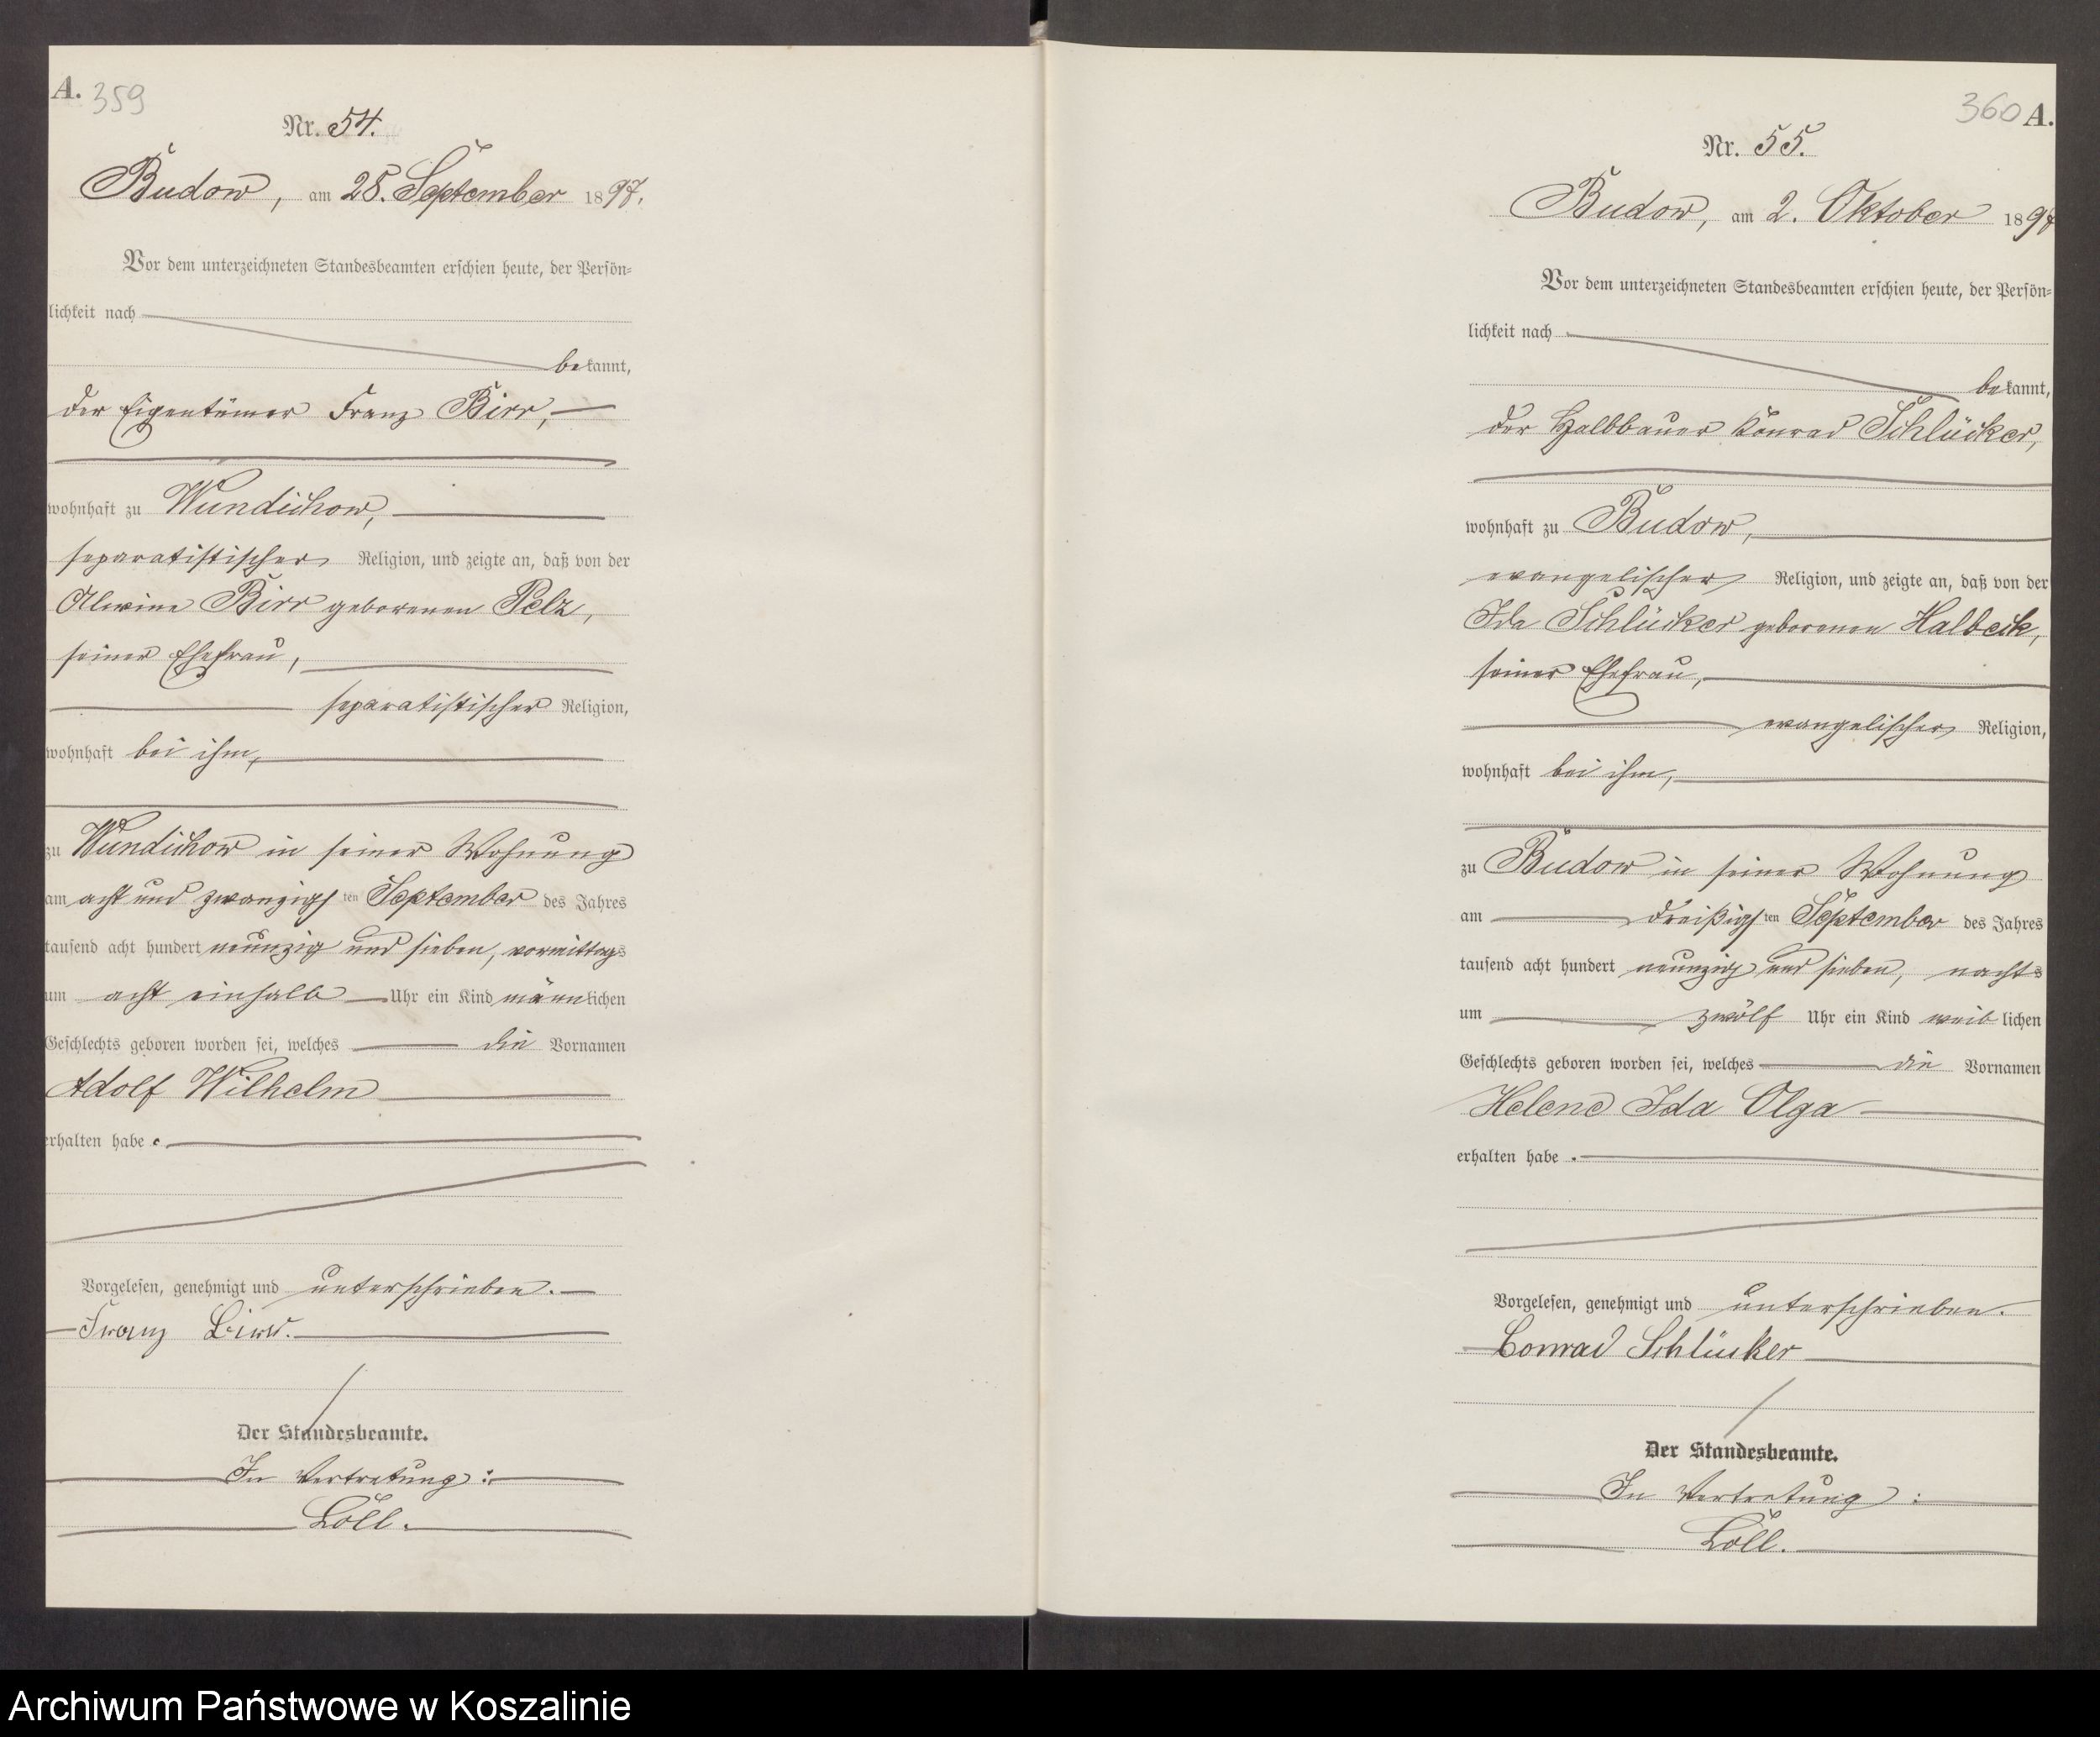 A. 359
Nr. 54.
Budow, am 28. September 1897.
Vor dem unterzeichneten Standesbeamten erschien heute, der Persön=
lichkeit nach
bekannt,
der Eigentümer Franz Birr,
wohnhaft zu Wundichow,
separatistischer Religion, und zeigte an, daß von der
Alwine Birr geborenen Pelz,
seiner Ehefrau,
separatistischer Religion,
wohnhaft bei ihm,
zu Wundichow in seiner Wohnung
am acht und zwanzigsten September des Jahres
tausend acht hundert neunzig und sieben, vormittags
um acht einhalb Uhr ein Kind männlichen
Geschlechts geboren worden sei, welches die Vornamen
Adolf Wilhelm
erhalten habe.
Vorgelesen, genehmigt und unterschrieben.
Franz Birr.
Der Standesbeamte.
In Vertretung:
Löll.
360 A.
Nr. 55.
Budow, am 2. Oktober 1897
Vor dem unterzeichneten Standesbeamten erschien heute, der Persön=
lichkeit nach
bekannt,
der Halbbauer Konrad Schlücker,
wohnhaft zu Budow,
evangelischer Religion, und zeigte an, daß von der
Ida Schlücker geborenen Halbeck,
seiner Ehefrau,
evangelischer Religion,
wohnhaft bei ihm,
zu Budow in seiner Wohnung
am dreißigsten September des Jahres
tausend acht hundert neunzig und sieben, nachts
um zwölf Uhr ein Kind weiblichen
Geschlechts geboren worden sei, welches die Vornamen
Helene Ida Olga
erhalten habe.
Vorgelesen, genehmigt und unterschrieben.
Conrad Schlücker
Der Standesbeamte.
In Vertretung:
Löll.
Archiwum Państwowe w Koszalinie